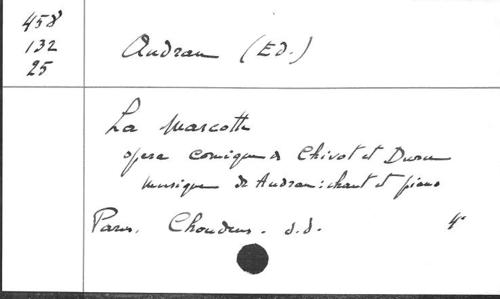 458
132
25
Audran (Ed.)
La Mascotte
opera comique de Chivot et Duru
musique de Audran: chant et piano
Paris. Choudens. s.d. 4°